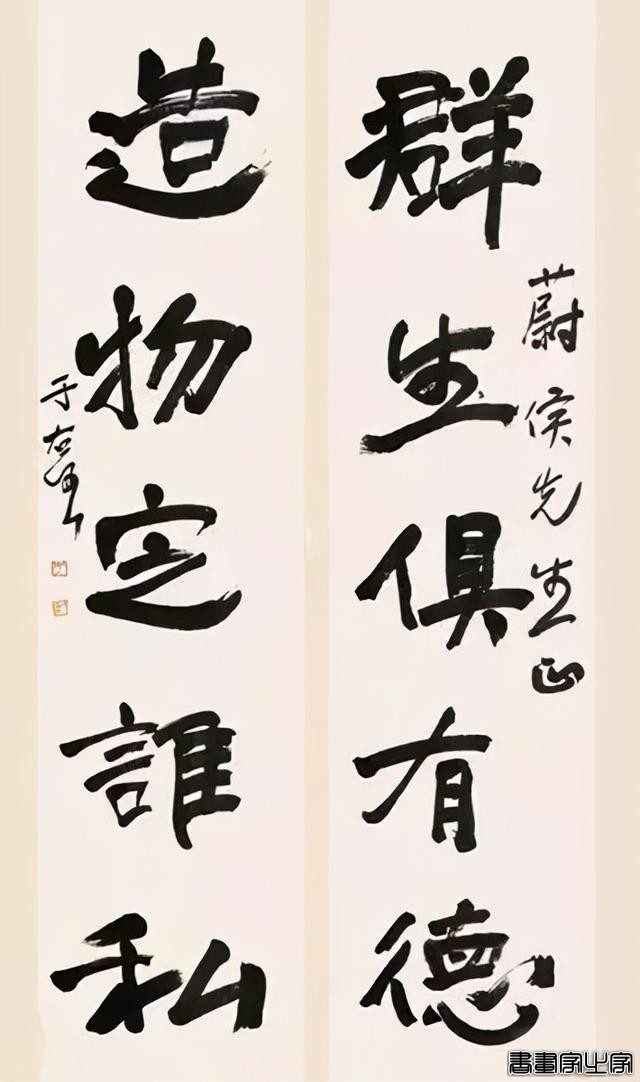 群生俱有德
蔚侯先生正
造物定誰私
于右任
書畫家之家